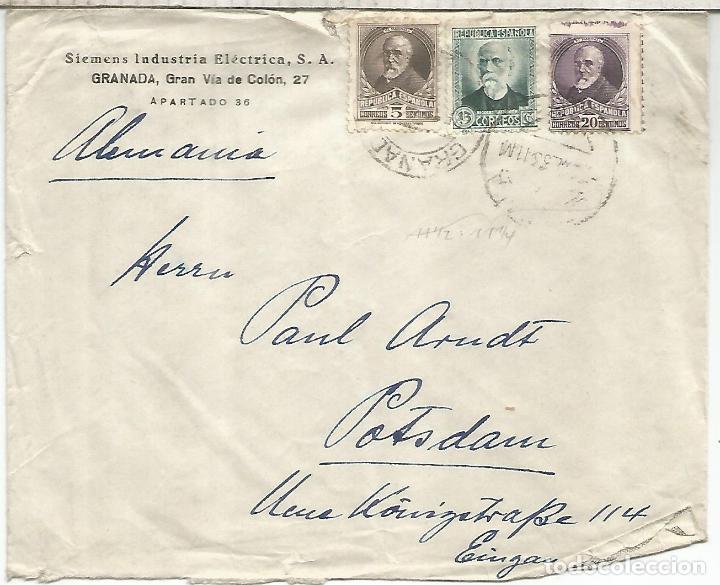 Siemens Industria Eléctrica, S. A.
GRANADA, Gran Vía de Colón, 27
APARTADO 36
REPUBLICA ESPAÑOLA
CORREOS 5 CENTIMOS
REPUBLICA ESPAÑOLA
15 CORREOS Cts
REPUBLICA ESPAÑOLA
CORREOS 20 CENTIMOS
GRANAD
Alemania
Herrn
Paul Arndt
Potsdam
Neue Königstraße 114
Eingan
todocoleccion